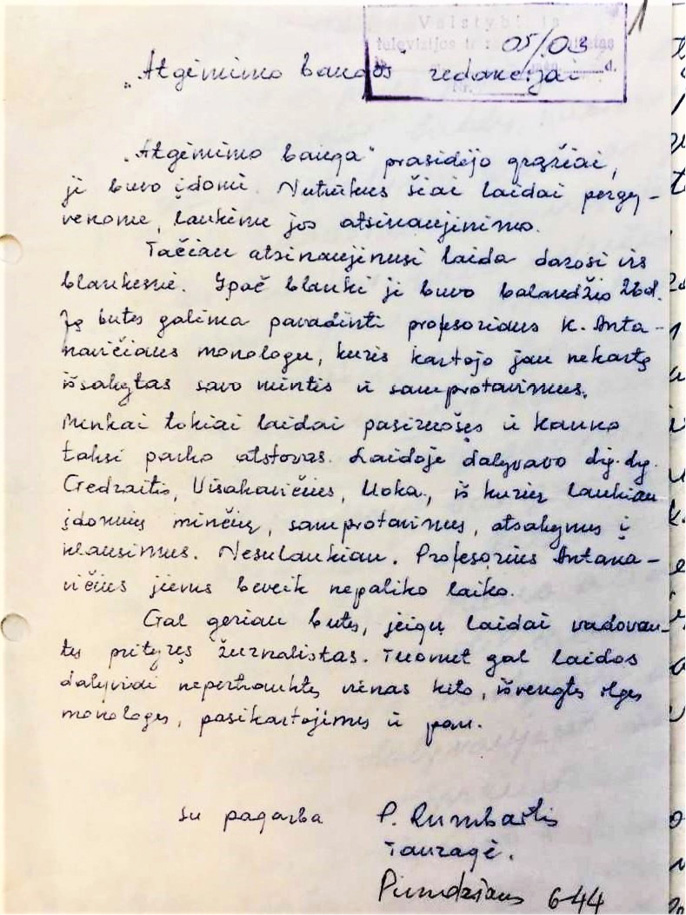 Valstybi
televizijos ir
05/03 d.
1
„Atgimimo bangos redakcijai
„Atgimimo banga" prasidėjo gražiai,
ji buvo įdomi. Nutrūkus šiai laidai pergy-
venome, laukėme jos atsinaujinimo.
Tačiau atsinaujinusi laida darosi vis
blankesnė. Ypač blanki ji buvo balandžio 26d.
Ją butų galima pavadinti profesoriaus K. Anta-
navičiaus monologu, kuris kartojo jau nekartą
išsakytas savo mintis ir samprotavimus.
Menkai tokiai laidai pasiruošęs ir Kauno
taksi parko atstovas. Laidoje dalyvavo drg. drg.
Gedraitis, Višakavičius, Uoka, iš kurių laukiau
įdomių minčių, samprotavimus, atsakymus į
klausimus. Nesulaukiau. Profesorius Antana-
vičius jiems beveik nepaliko laiko.
Gal geriau butų, jeigu laidai vadovau-
tų prityręs žurnalistas. Tuomet gal laidos
dalyviai nepertrauktų vienas kito, išvengtų ilgų
monologų, pasikartojimų ir pan.
su pagarba P. Rumbaitis
Tauragė.
6-44